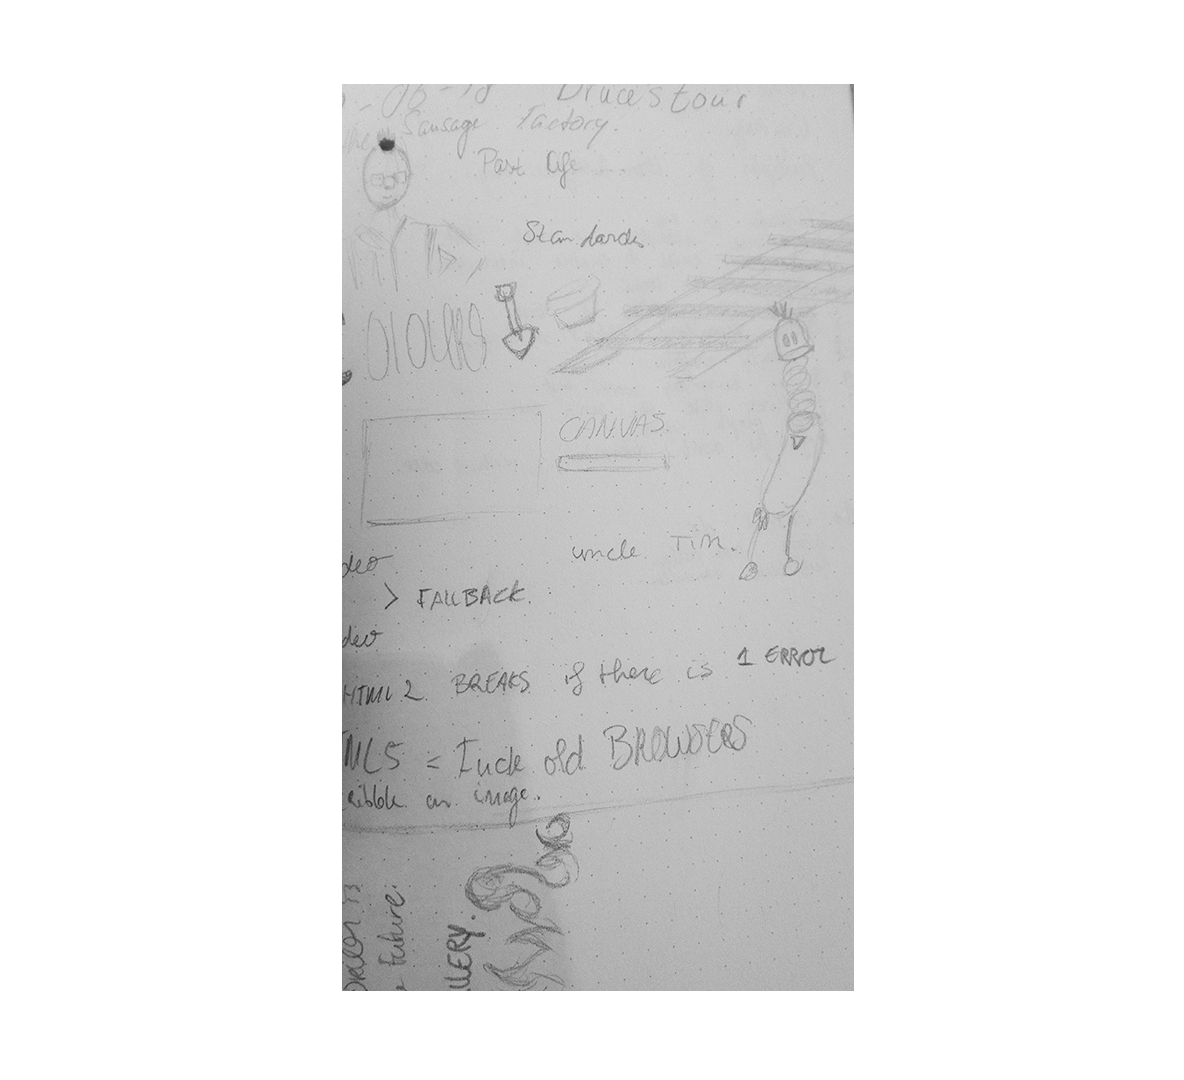 -06-18 Bruces tour
the Sausage Factory.
Past life ....
Standards
COLOURS
CANVAS
uncle Tim.
deo
> FALLBACK
deo
HTML 2 BREAKS if there is 1 ERROR
TML5 = Fuck old BROWSERS
ribble an image.
is
e future.
LLERY.